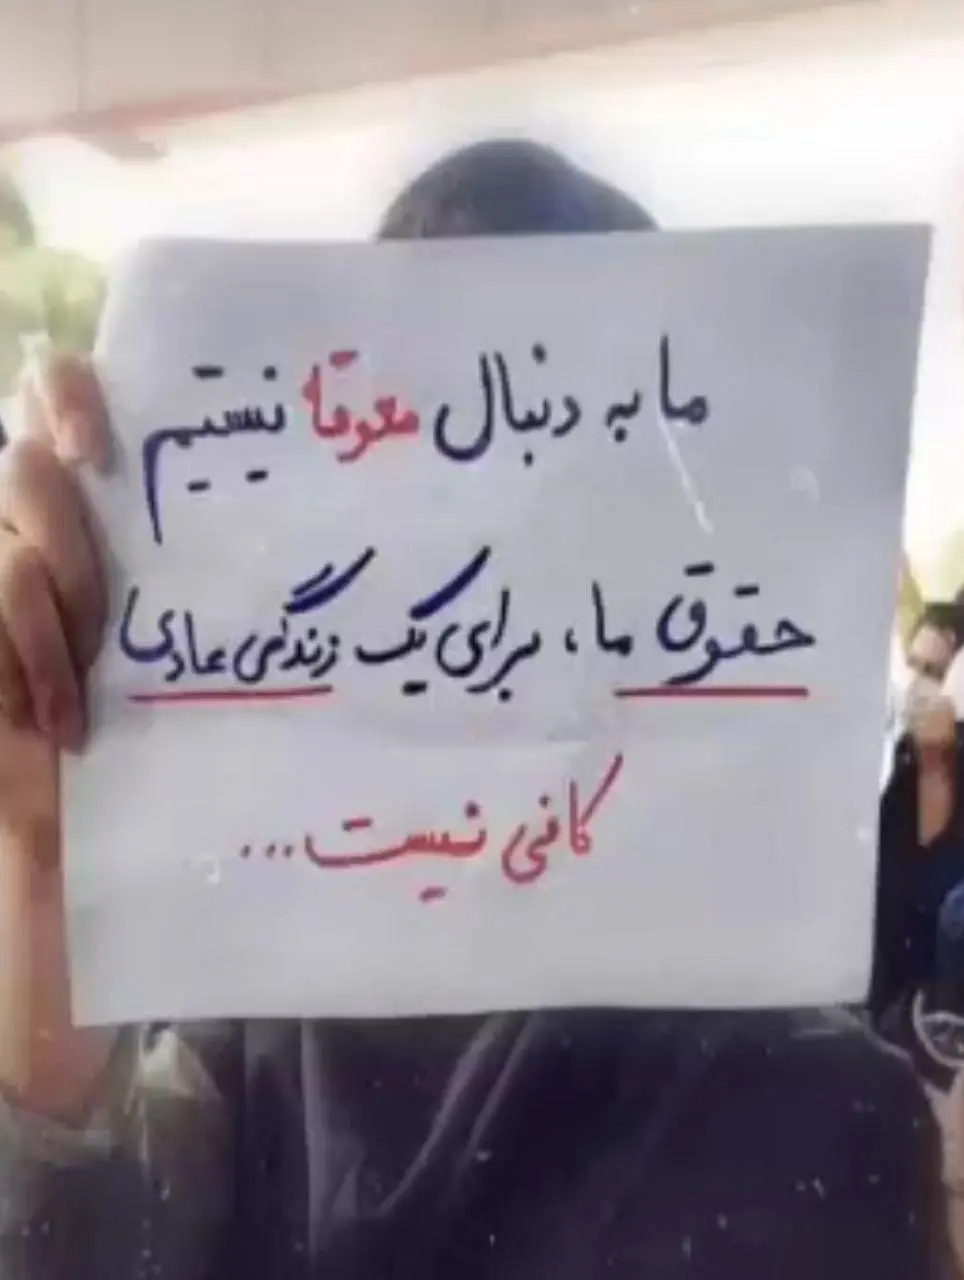 ما به دنبال معوقه نیستیم
حقوق ما، برای یک زندگی عادی
کافی نیست...